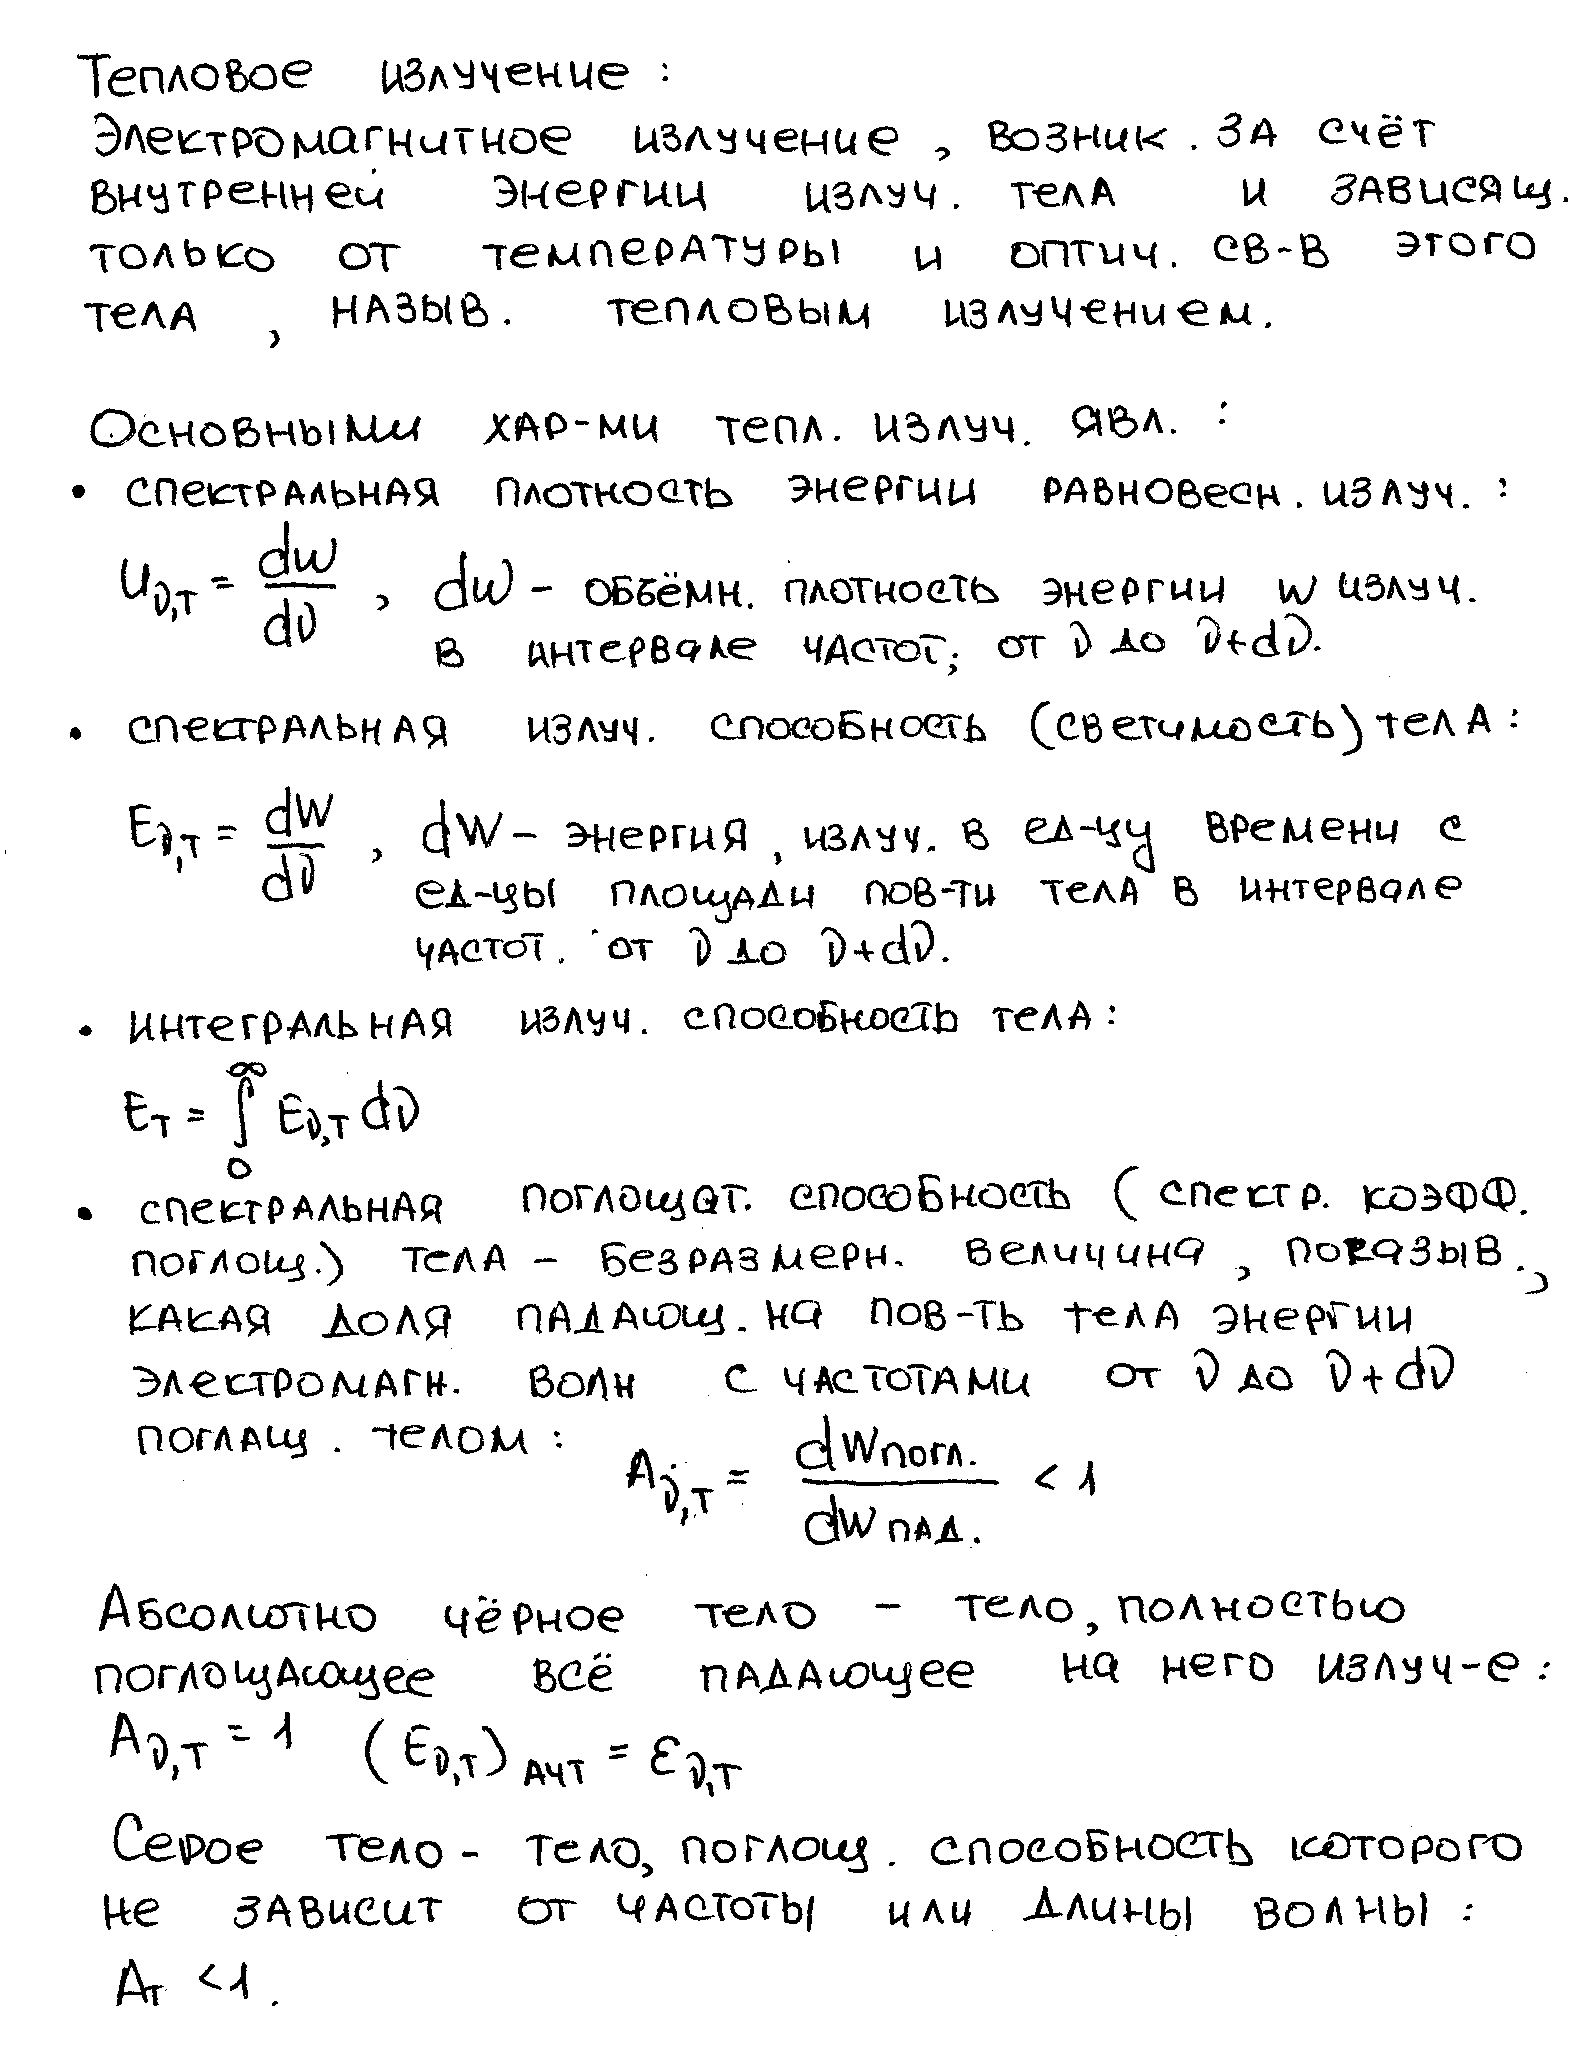 Тепловое излучение :
Электромагнитное излучение , возник. за счёт
внутренней энергии излуч. тела и зависящ.
только от температуры и оптич. св-в этого
тела , назыв. тепловым излучением.
Основными хар-ми тепл. излуч. явл. :
• спектральная плотность энергии равновесн. излуч. :
u_{ν,T} = dw/dν , dw – объёмн. плотность энергии w излуч.
в интервале частот; от ν до ν+dν.
• спектральная излуч. способность (светимость) тела :
E_{ν,T} = dW/dν , dW – энергия , излуч. в ед-цу времени с
ед-цы площади пов-ти тела в интервале
частот. от ν до ν+dν.
• интегральная излуч. способность тела :
E_T = ∫_0^∞ E_{ν,T} dν
• спектральная поглощат. способность ( спектр. коэфф.
поглощ.) тела – безразмерн. величина , показыв.,
какая доля падающ. на пов-ть тела энергии
электромагн. волн с частотами от ν до ν+dν
поглащ . телом :
A_{ν,T} = dWпогл. / dWпад. < 1
Абсолютно чёрное тело – тело, полностью
поглощающее всё падающее на него излуч-е :
A_{ν,T} = 1 (E_{ν,T})_{АЧТ} = ε_{ν,T}
Серое тело – тело, поглощ . способность которого
не зависит от частоты или длины волны :
A_T < 1 .